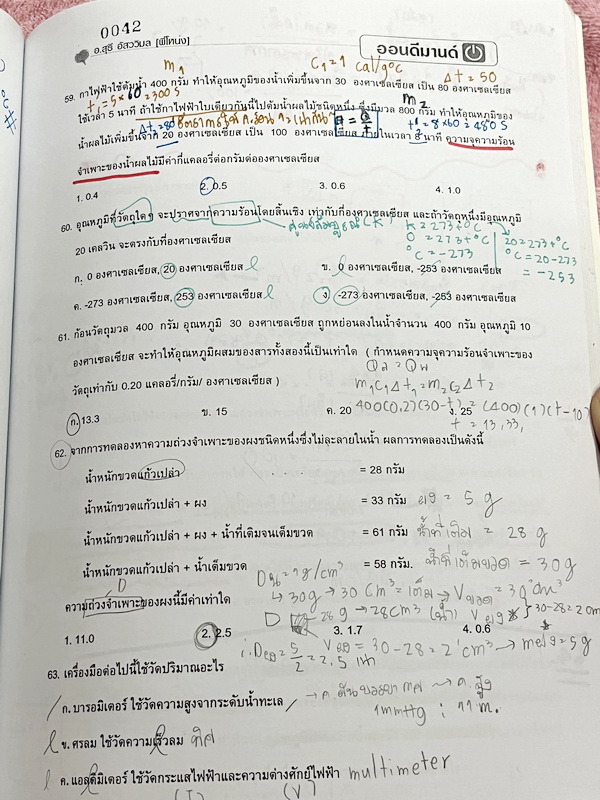 0042
อ.สุธี อัสววิมล [พี่โหน่ง]
ออนดีมานด์
m₁ C₁=1 cal/g°C Δt=50
59. กาไฟฟ้าใช้ต้มน้ำ 400 กรัม ทำให้อุณหภูมิของน้ำเพิ่มขึ้นจาก 30 องศาเซลเซียส เป็น 80 องศาเซลเซียส
t₁=5×60=300 s m₂
ใช้เวลา 5 นาที ถ้าใช้กาไฟฟ้าใบเดียวกันนี้ไปต้มน้ำผลไม้ชนิดหนึ่ง ซึ่งมีมวล 800 กรัม ทำให้อุณหภูมิของ
Δt=80 t=8×60=480 s
น้ำผลไม้เพิ่มขึ้นจาก 20 องศาเซลเซียส เป็น 100 องศาเซลเซียส ภายในเวลา 8 นาที ความจุความร้อน
จำเพาะของน้ำผลไม้มีค่ากี่แคลอรี่ต่อกรัมต่อองศาเซลเซียส
1. 0.4 2. 0.5 3. 0.6 4. 1.0
60. อุณหภูมิที่วัตถุใดๆ จะปราศจากความร้อนโดยสิ้นเชิง เท่ากับกี่องศาเซลเซียส และถ้าวัตถุหนึ่งมีอุณหภูมิ
20 เคลวิน จะตรงกับกี่องศาเซลเซียส
K=273+°C
0=273+°C
°C=-273
20=273+°C
°C=20-273
=-253
ก. 0 องศาเซลเซียส, 20 องศาเซลเซียส ข. 0 องศาเซลเซียส, -253 องศาเซลเซียส
ค. -273 องศาเซลเซียส, 253 องศาเซลเซียส ง. -273 องศาเซลเซียส, -253 องศาเซลเซียส
61. ก้อนวัตถุมวล 400 กรัม อุณหภูมิ 30 องศาเซลเซียส ถูกหย่อนลงในน้ำจำนวน 400 กรัม อุณหภูมิ 10
องศาเซลเซียส จะทำให้อุณหภูมิผสมของสารทั้งสองนี้เป็นเท่าใด ( กำหนดความจุความร้อนจำเพาะของ
วัตถุเท่ากับ 0.20 แคลอรี่/กรัม/ องศาเซลเซียส )
m₁c₁Δt₁=m₂c₂Δt₂
ก. 13.3 ข. 15 ค. 20 ง. 25
400(0.2)(30-t)=(400)(1)(t-10)
t=13.33
62. จากการทดลองหาความถ่วงจำเพาะของผงชนิดหนึ่งซึ่งไม่ละลายในน้ำ ผลการทดลองเป็นดังนี้
น้ำหนักขวดแก้วเปล่า = 28 กรัม
น้ำหนักขวดแก้วเปล่า + ผง = 33 กรัม ผง = 5 g
น้ำหนักขวดแก้วเปล่า + ผง + น้ำที่เติมจนเต็มขวด = 61 กรัม น้ำที่เติม = 28 g
น้ำหนักขวดแก้วเปล่า + น้ำเต็มขวด = 58 กรัม. น้ำที่เต็มขวด = 30g
ความถ่วงจำเพาะของผงนี้มีค่าเท่าใด
1. 11.0 2. 2.5 3. 1.7 4. 0.6
63. เครื่องมือต่อไปนี้ใช้วัดปริมาณอะไร
ก. บารอมิเตอร์ ใช้วัดความสูงจากระดับน้ำทะเล
1mmHg : 11 m.
ข. ศรลม ใช้วัดความเร็วลม ทิศ
ค. แอลดิมิเตอร์ ใช้วัดกระแสไฟฟ้าและความต่างศักย์ไฟฟ้า multimeter
(I) (V)